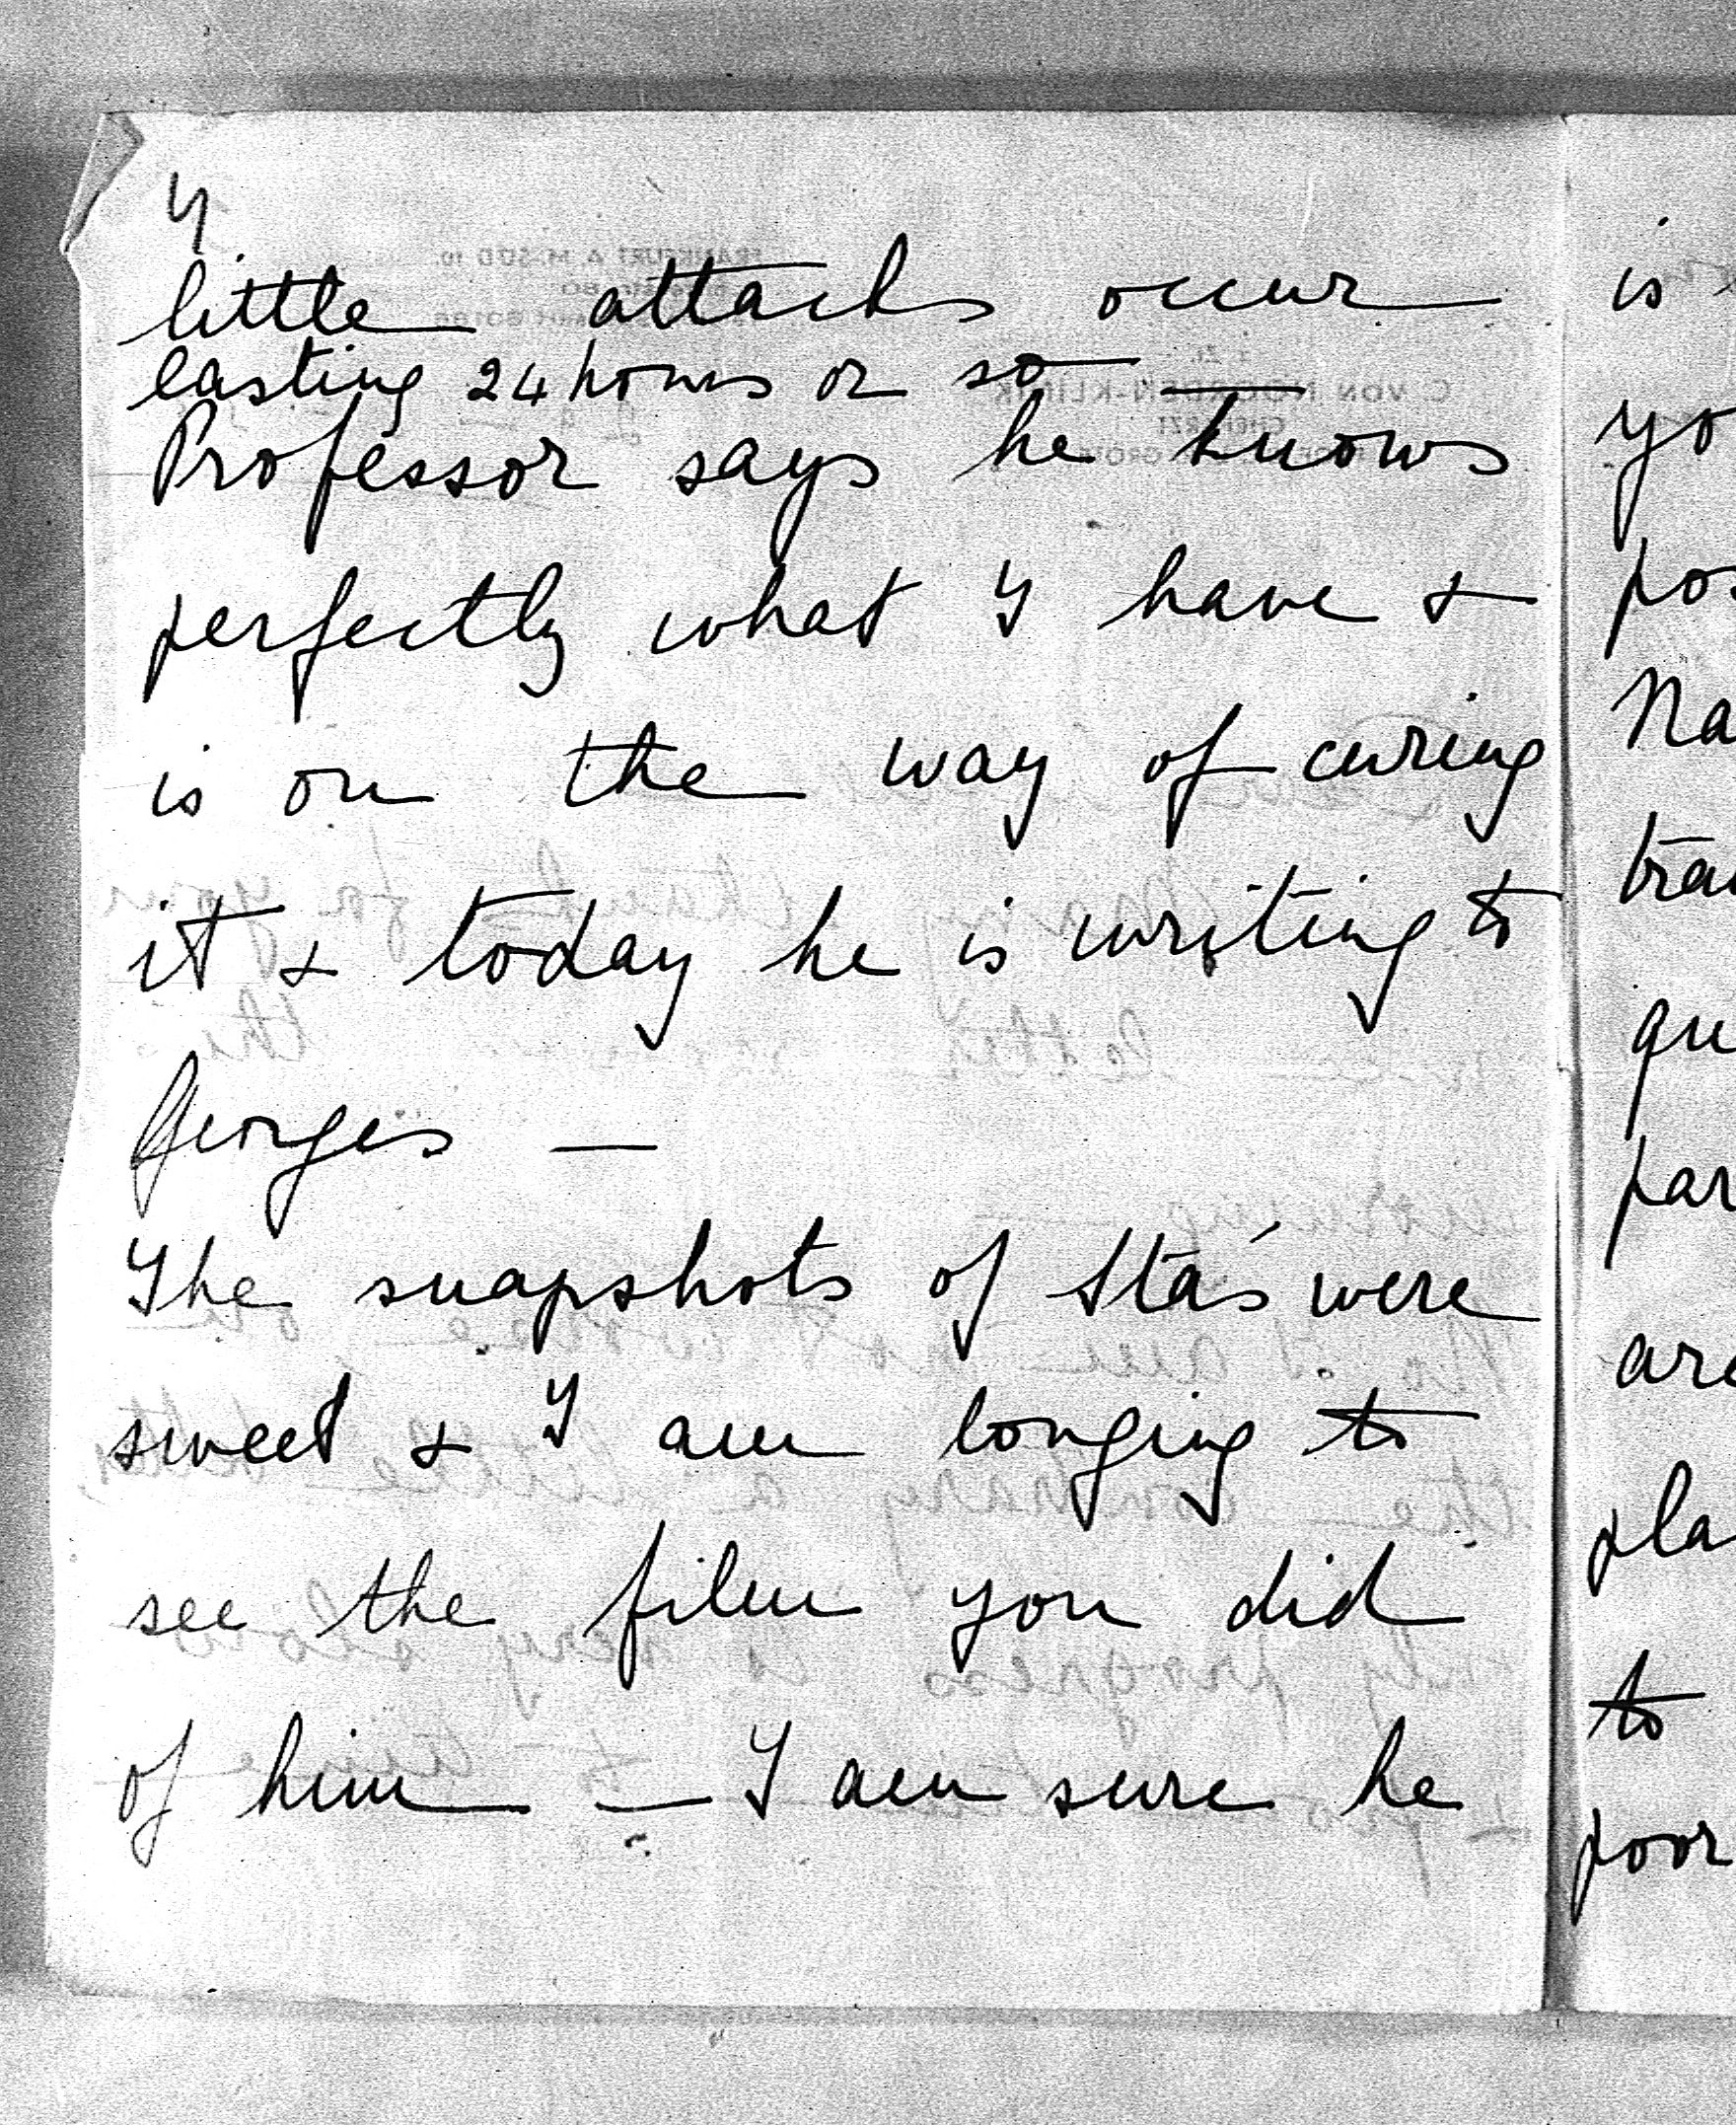 4
little attacks occur
lasting 24 hours or so —
Professor says he knows
perfectly what I have &
is on the way of curing
it & today he is writing to
Georges —
The snapshots of Stás were
sweet & I am longing to
see the film you did
of him — I am sure he
is
yo
pos
Na
tra
qu
par
are
pla
to
poor